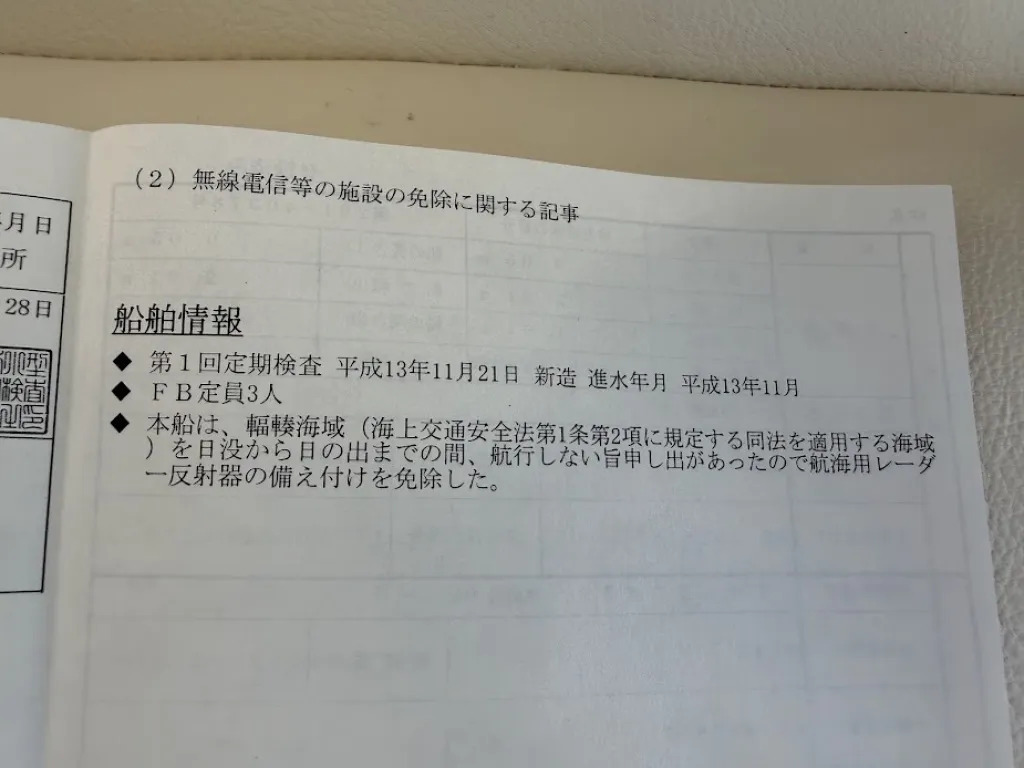 (2) 無線電信等の施設の免除に関する記事
月日
所
28日
船舶情報
◆ 第1回定期検査 平成13年11月21日 新造 進水年月 平成13年11月
◆ FB定員3人
◆ 本船は、輻輳海域(海上交通安全法第1条第2項に規定する同法を適用する海域
)を日没から日の出までの間、航行しない旨申し出があったので航海用レーダ
ー反射器の備え付けを免除した。